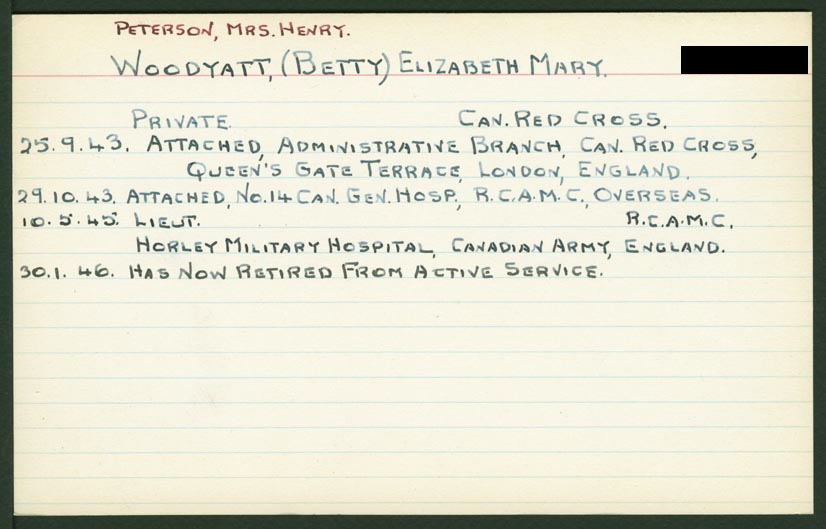 PETERSON, MRS. HENRY.
WOODYATT, (BETTY) ELIZABETH MARY.
PRIVATE. CAN. RED CROSS.
25.9.43. ATTACHED, ADMINISTRATIVE BRANCH, CAN. RED CROSS,
QUEEN'S GATE TERRACE, LONDON, ENGLAND.
29.10.43. ATTACHED, NO.14 CAN. GEN. HOSP., R.C.A.M.C., OVERSEAS.
10.5.45. LIEUT. R.C.A.M.C.
HORLEY MILITARY HOSPITAL, CANADIAN ARMY, ENGLAND.
30.1.46. HAS NOW RETIRED FROM ACTIVE SERVICE.